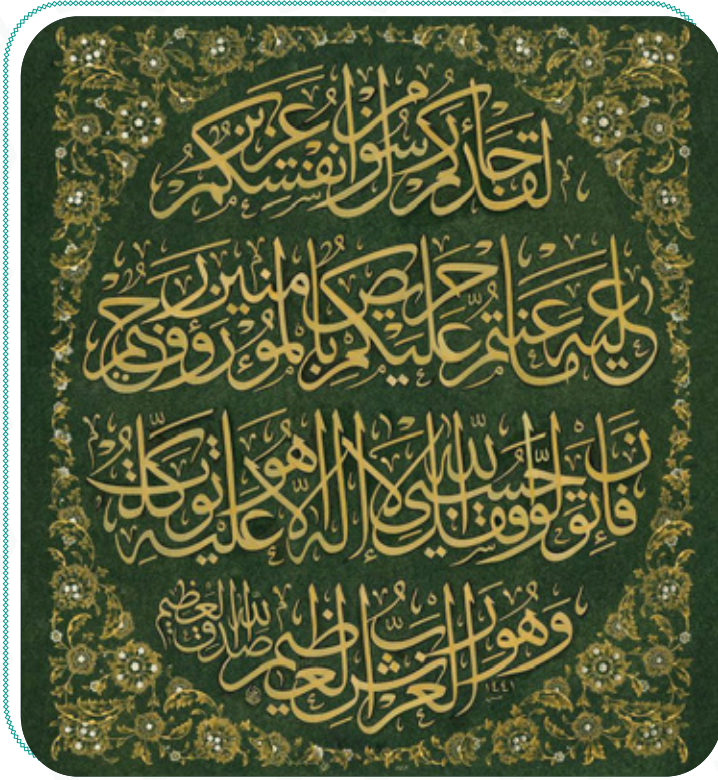 لقد جائكم رسول من انفسكم عزيز
عليه ما عنتم حريص عليكم بالمؤمنين رؤوف رحيم
فان تولوا فقل حسبي الله لا إله الا هو عليه توكلت
وهو رب العرش العظيم صدق الله العظيم
١٤٤١